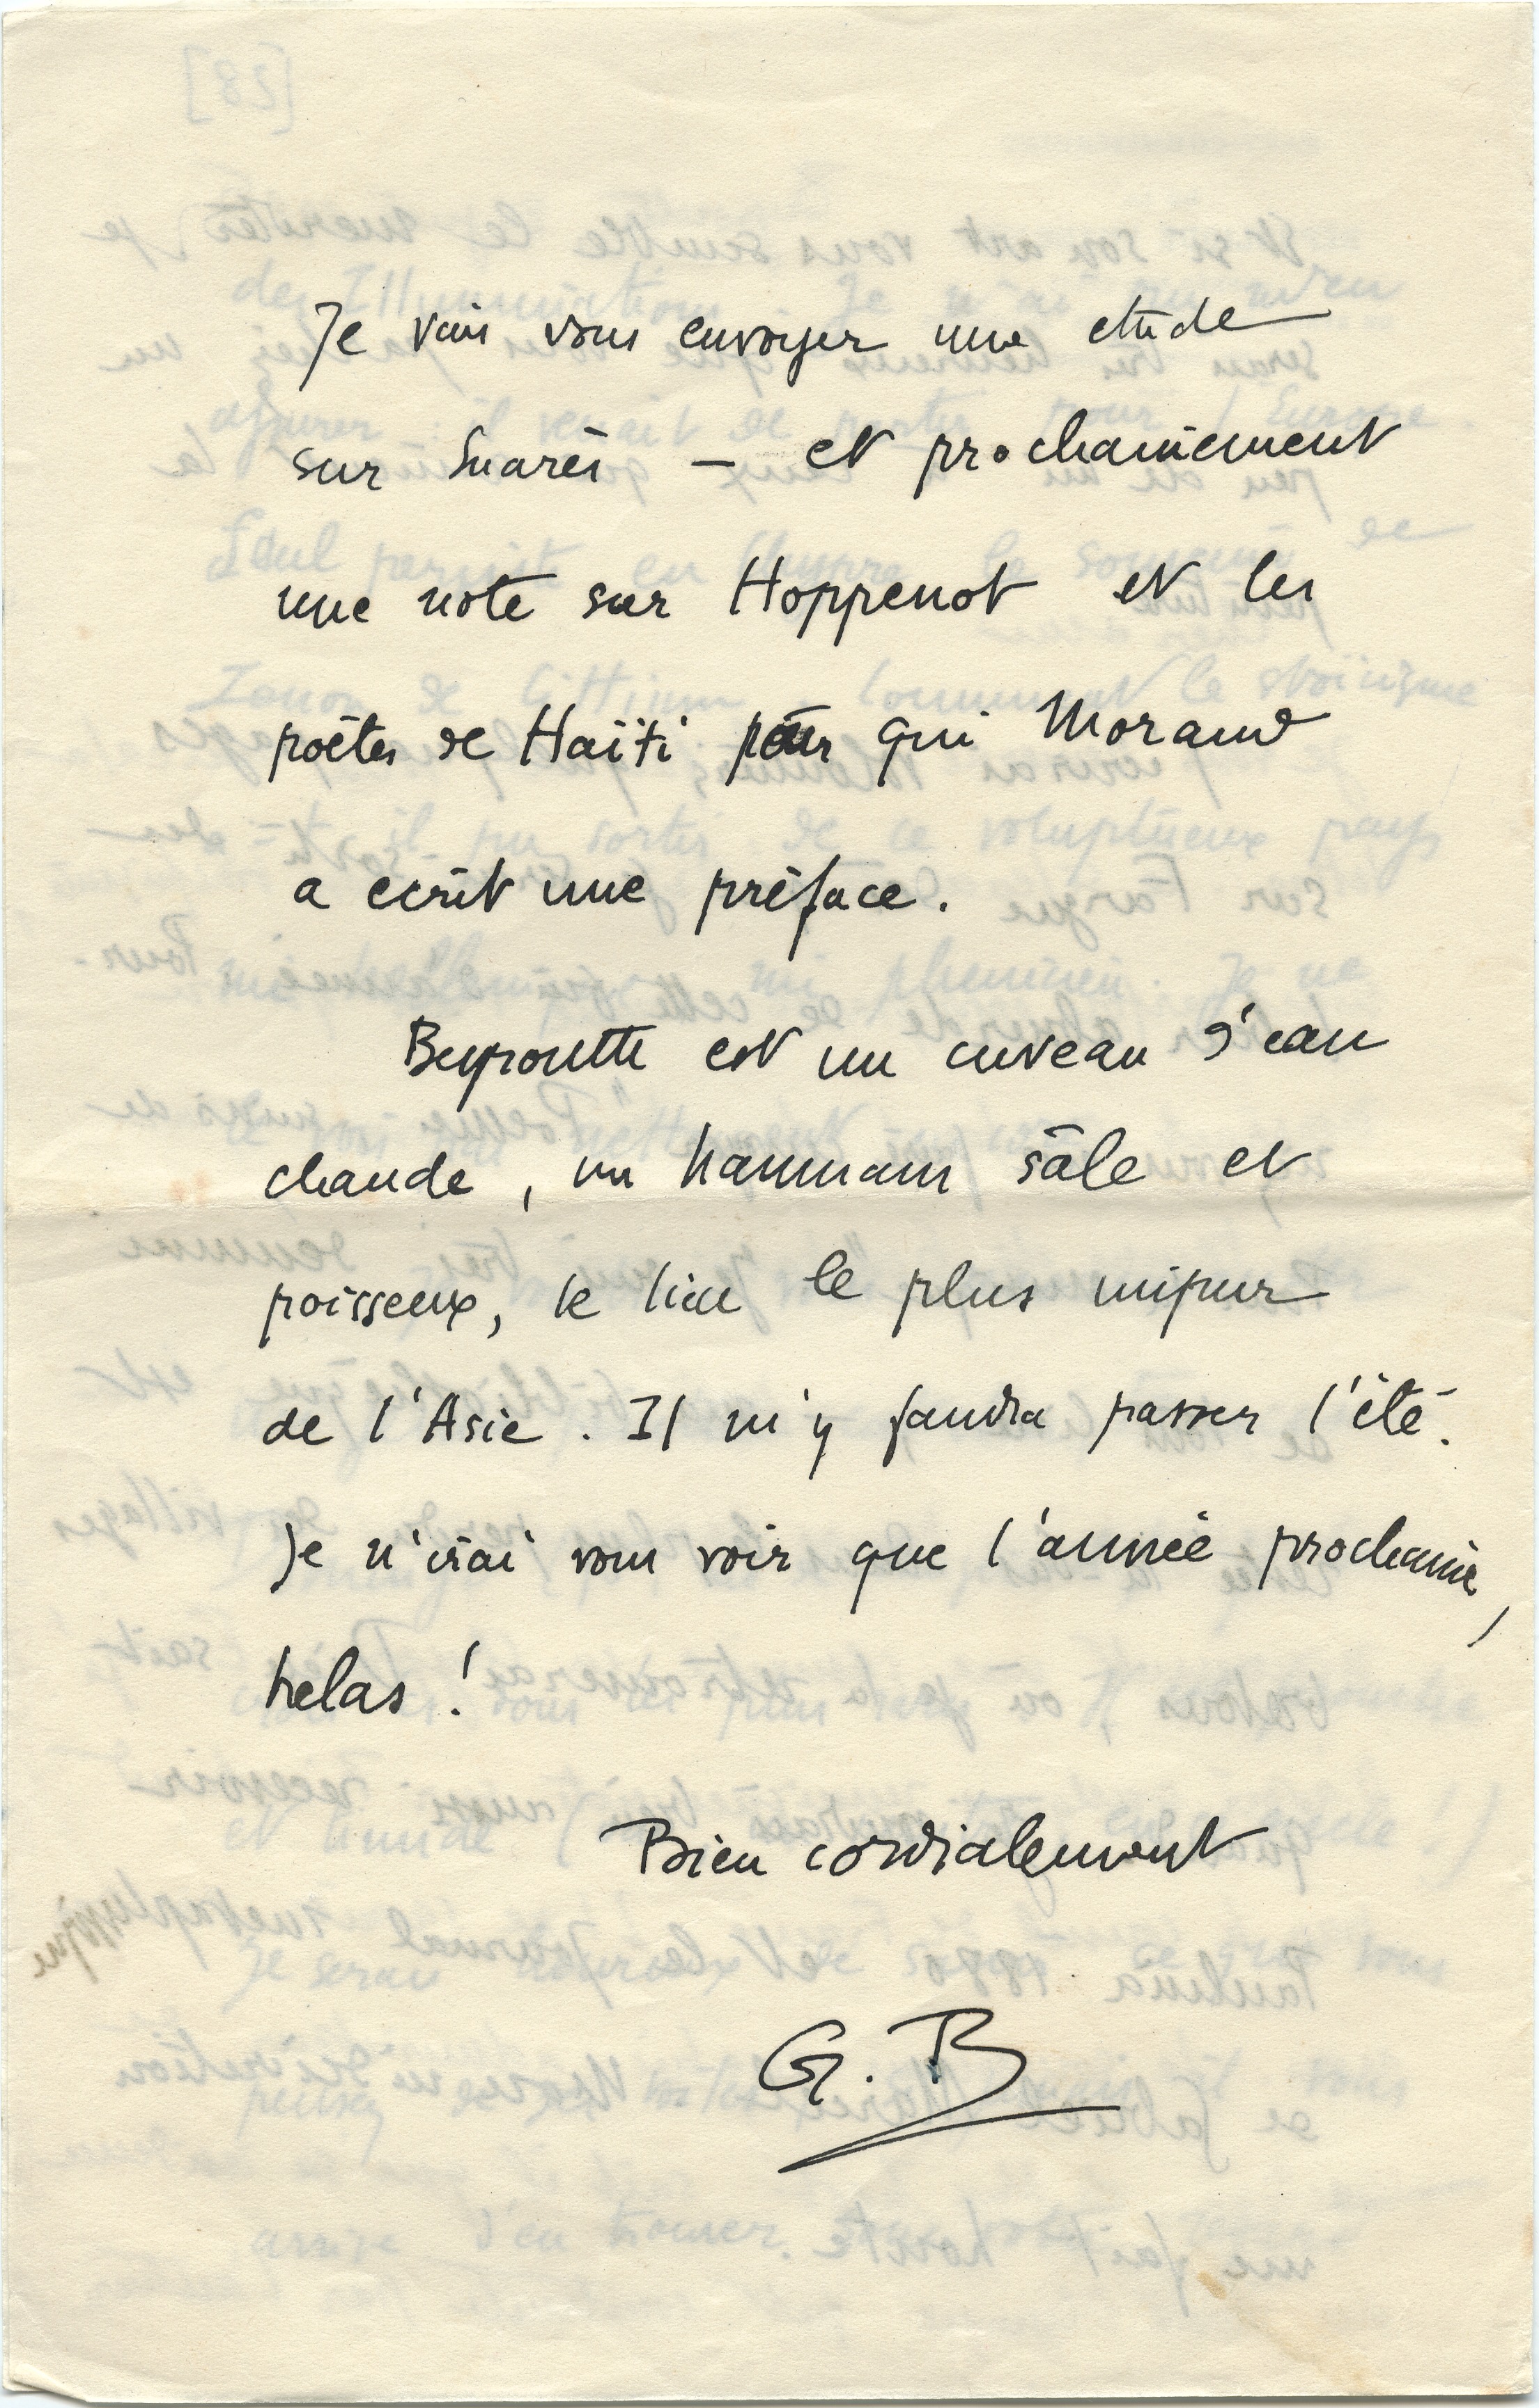 Je vais vous envoyer une etude
sur Suarès — et prochainement
une note sur Hoppenot et les
poètes de Haïti pour qui Morand
a ecrit une préface.
Beyrouth est un cuveau d'eau
chaude, un hammam sâle et
poisseux, le lieu le plus impur
de l'Asie. Il m'y faudra passer l'été.
Je n'irai vous voir que l'année prochaine,
helas !
Bien cordialement
G. B